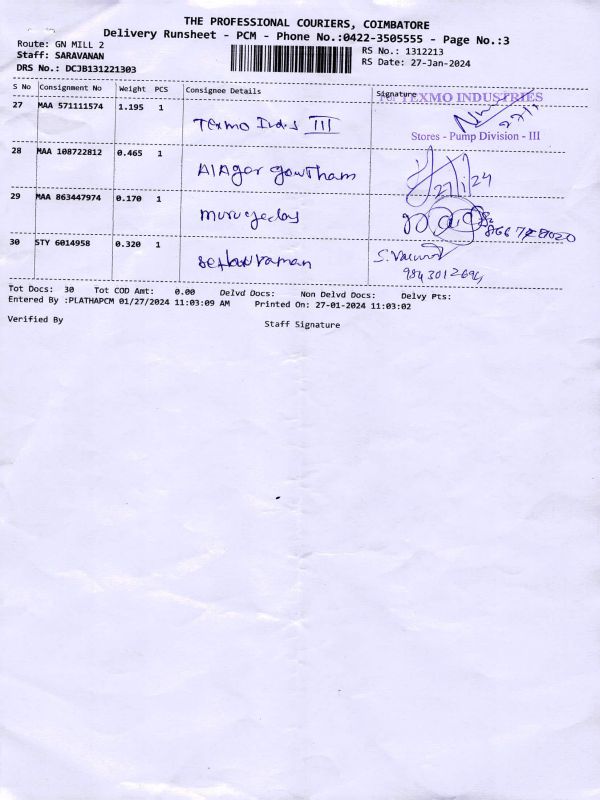 THE PROFESSIONAL COURIERS, COIMBATORE
Delivery Runsheet - PCM - Phone No.:0422-3505555 - Page No.:3
Route: GN MILL 2
RS No.: 1312213
Staff: SARAVANAN
RS Date: 27-Jan-2024
DRS No.: DCJB131221303
S No Consignment No Weight PCS Consignee Details Signature
For TEXMO INDUSTRIES
27 MAA 571111574 1.195 1 Texmo Inds III
27/1
Stores - Pump Division - III
28 MAA 108722812 0.465 1 AlAger gowtham
27/1/24
29 MAA 863447974 0.170 1 murugedas
30 STY 6014958 0.320 1 Sethuvraman
9843012694
Tot Docs: 30 Tot COD Amt: 0.00 Delvd Docs: Non Delvd Docs: Delvy Pts:
Entered By :PLATHAPCM 01/27/2024 11:03:09 AM Printed On: 27-01-2024 11:03:02
Verified By
Staff Signature